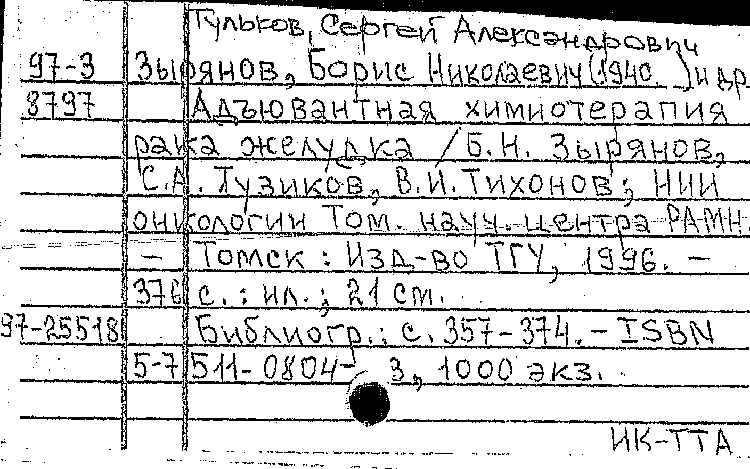 Тульков, Сергей Александрович
97-3 Зырянов, Борис Николаевич (1940. ) и др
8797 Адъювантная химиотерапия
рака желудка / Б.Н. Зырянов,
С.А. Тузиков, В.И. Тихонов; НИИ
онкологии Том. науч. центра РАМН.
– Томск : Изд-во ТГУ, 1996. –
376 с. : ил. ; 21 см.
97-25518 Библиогр.: с. 357-374. – ISBN
5-7511-0804-3, 1000 экз.
ИК-ТТА